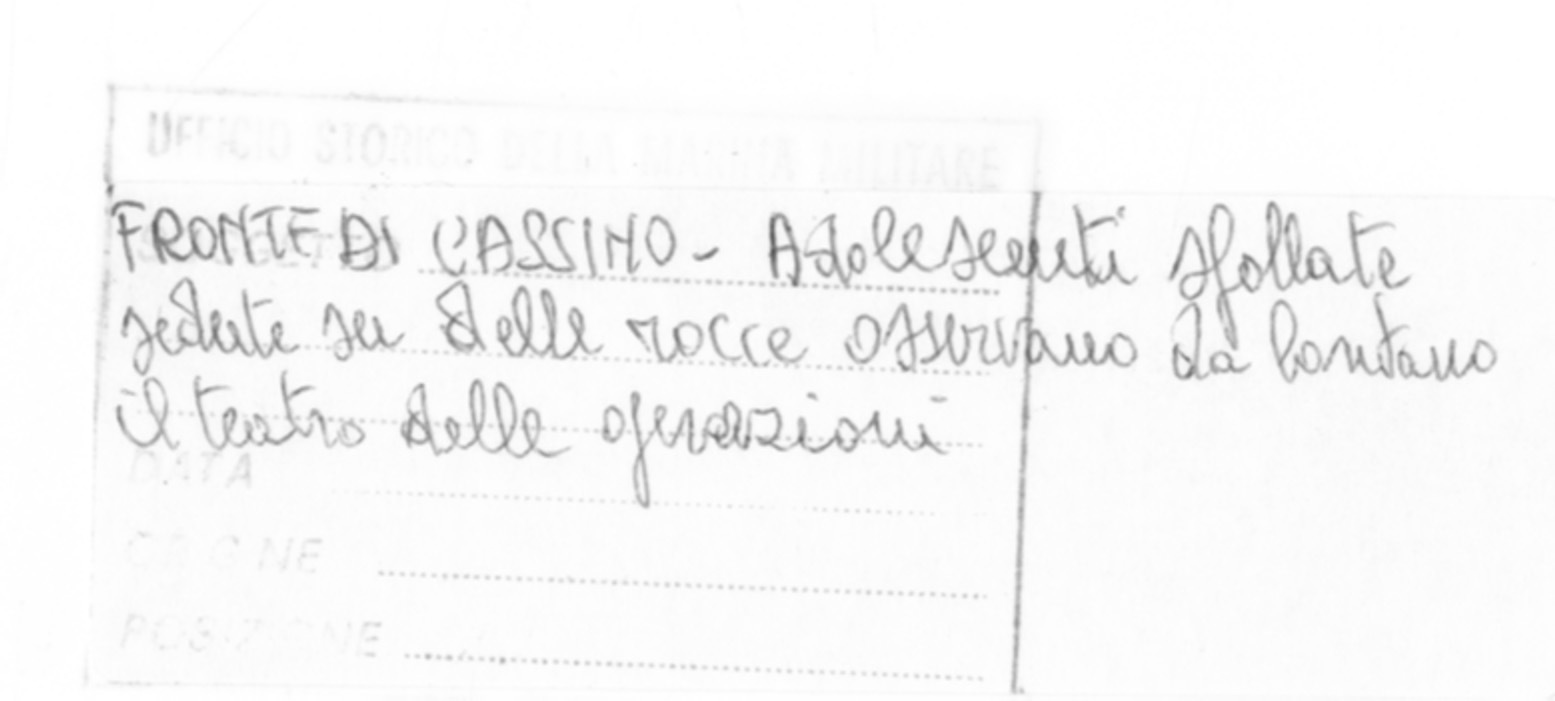 UFFICIO STORICO DELLA MARINA MILITARE
FRONTE DI CASSINO - Adolescenti sfollate
sedute su delle rocce osservano da lontano
il teatro delle operazioni
DATA
ORIGINE
POSIZIONE